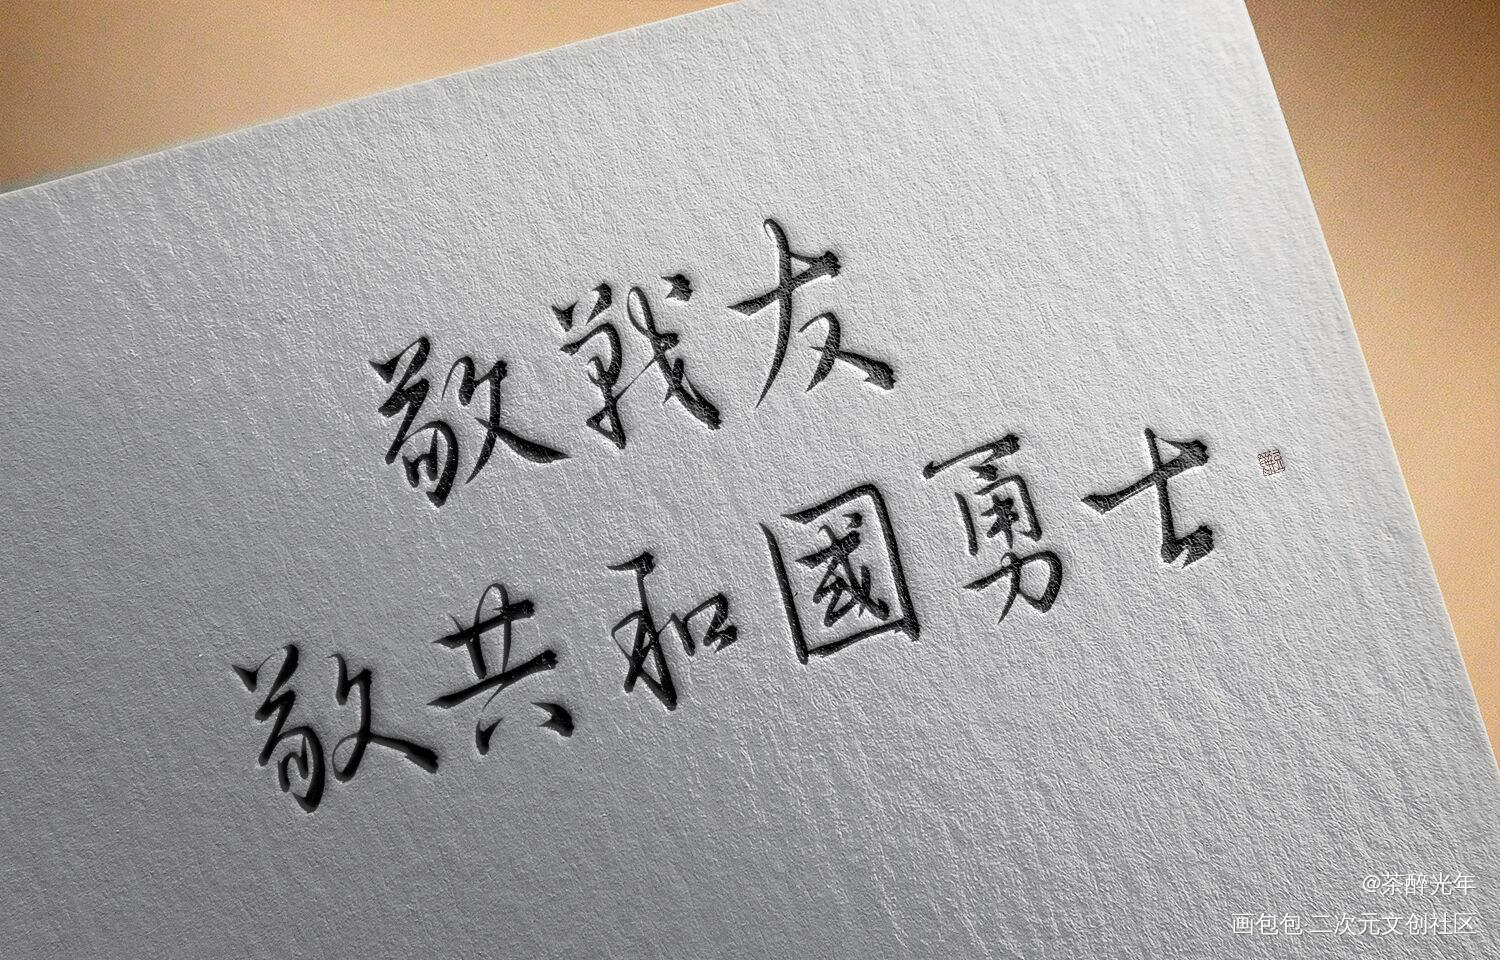 敬戰友
敬共和國勇士
@茶醉光年
画包包 二次元文创社区